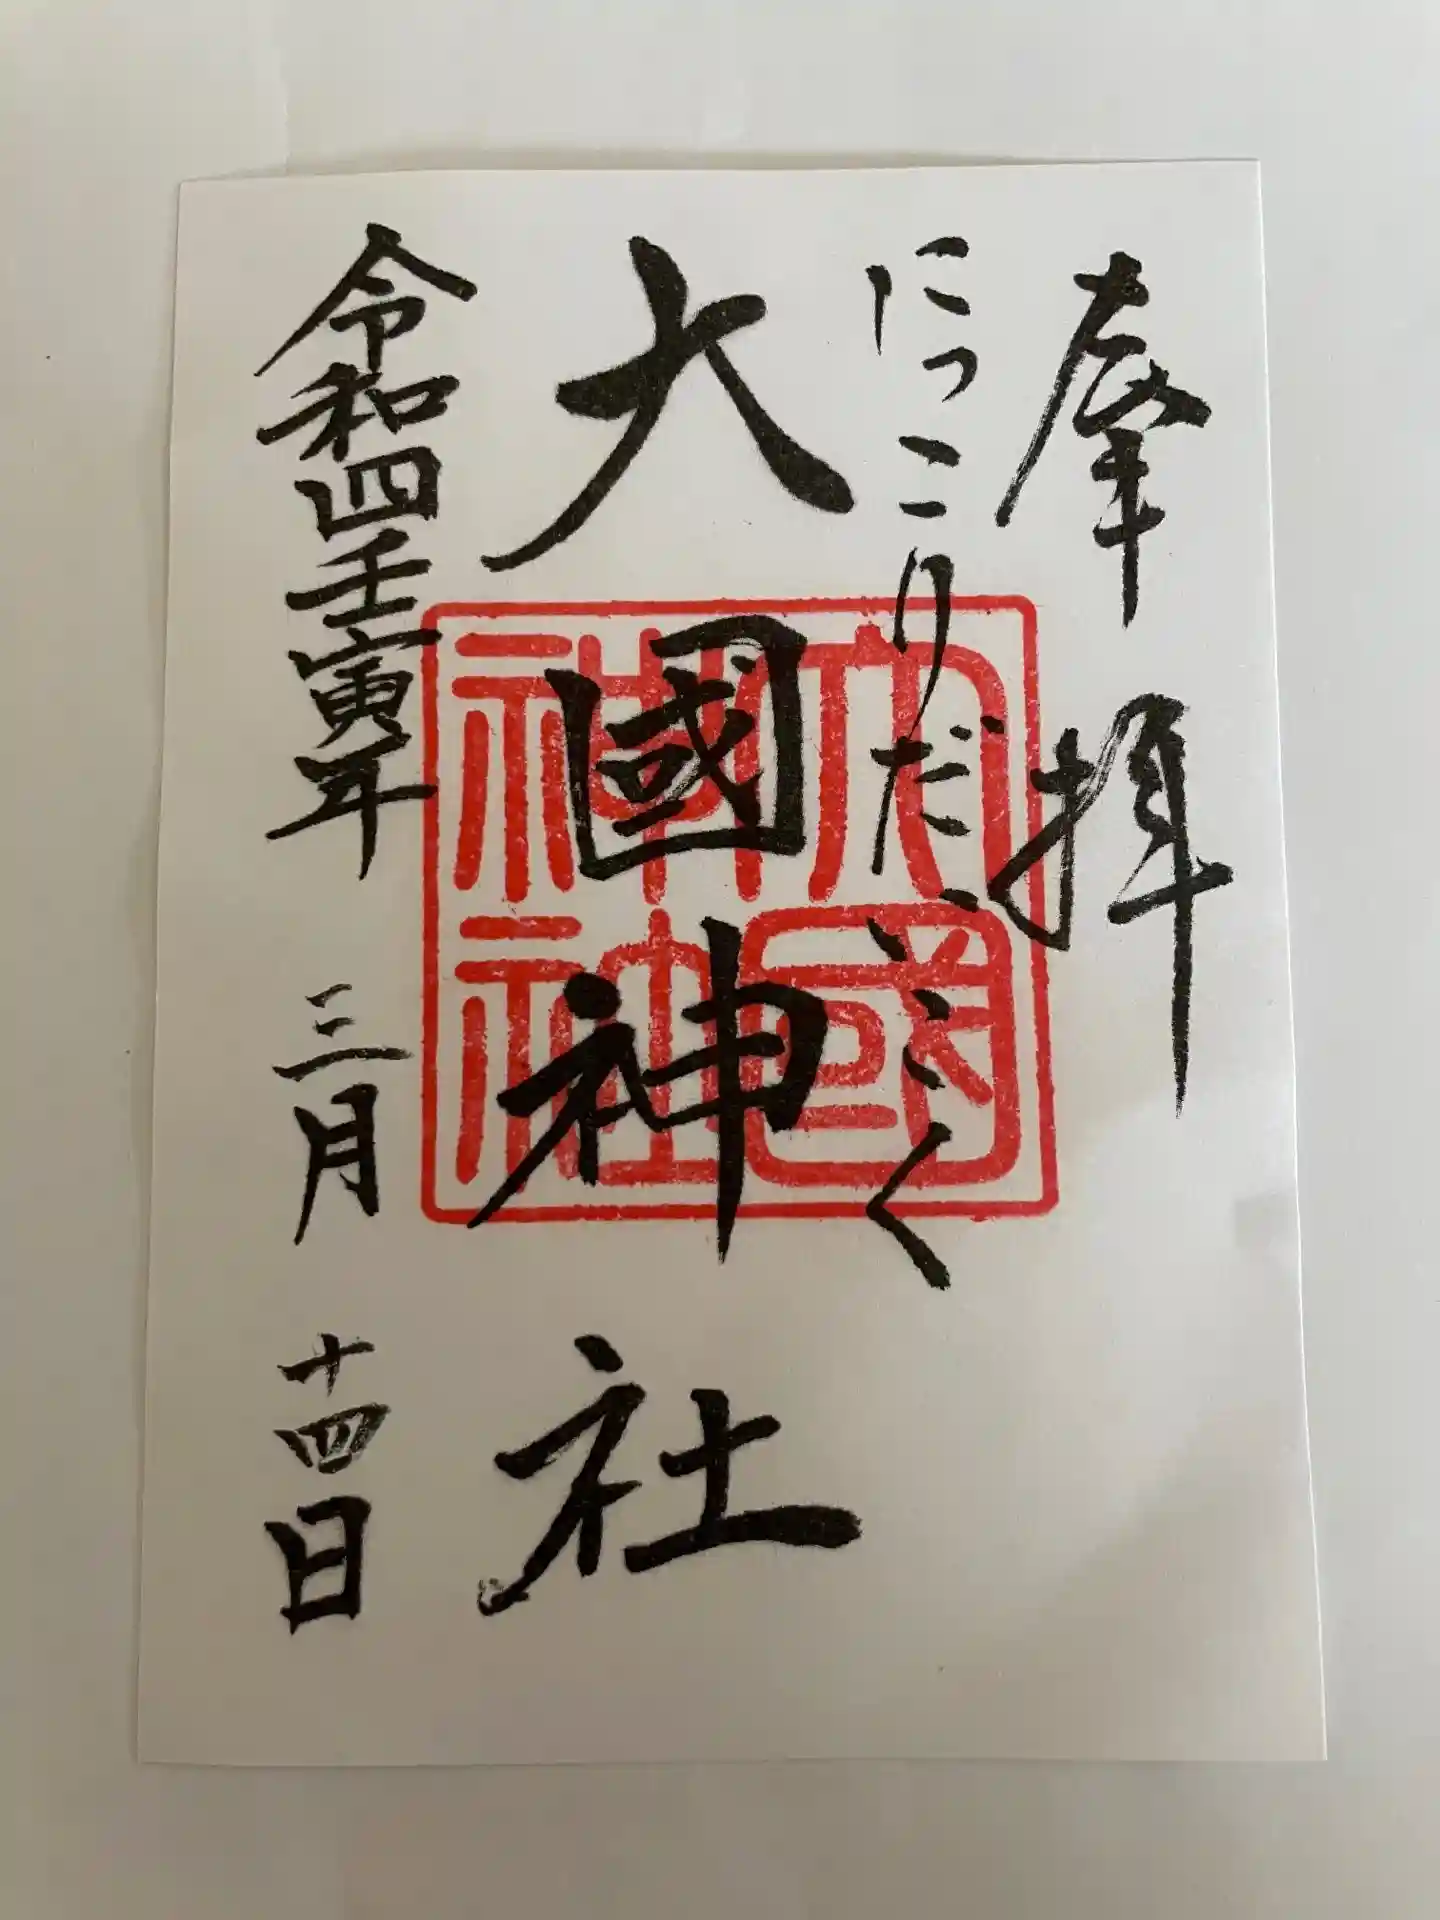 奉拝
にっこりだいこく
大國神社
令和四壬寅年 三月 十四日
大國
神社